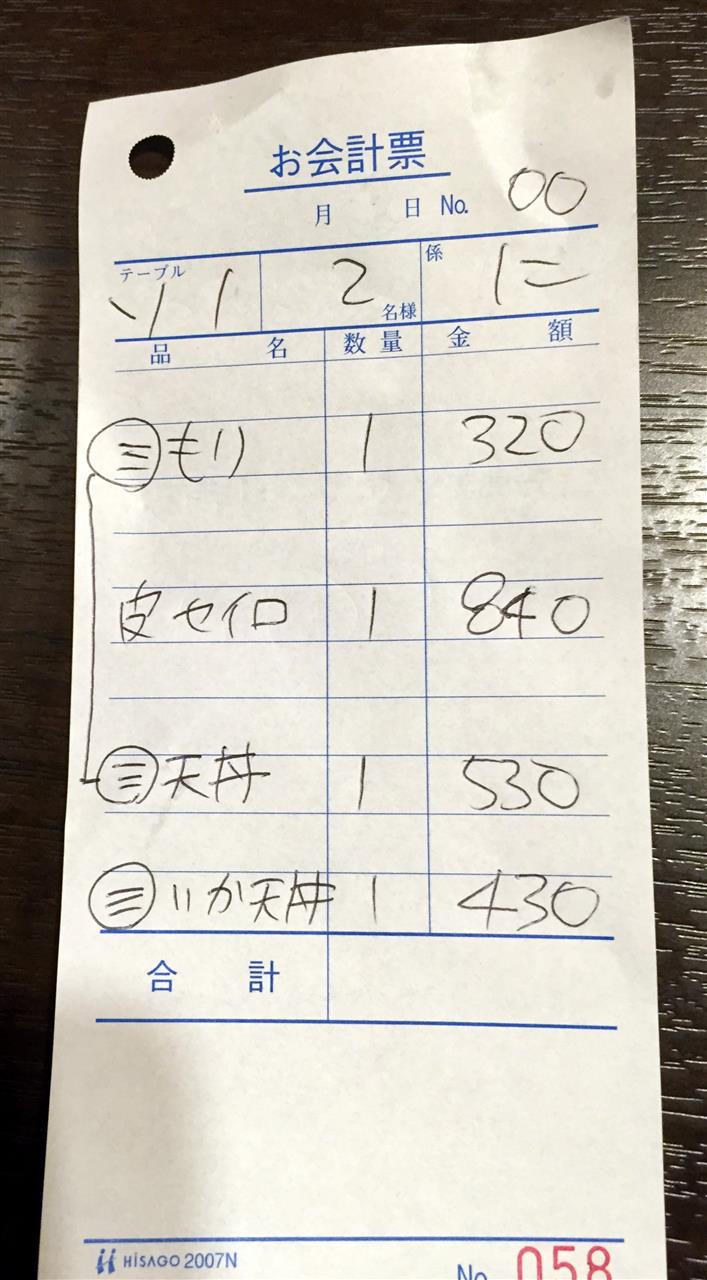 お会計票
月 日 No. 00
テーブル ソ1 2 名様 係 に
品名 数量 金額
㊂もり 1 320
皮セイロ 1 840
㊂天丼 1 530
㊂いか天丼 1 430
合計
HiSAGO 2007N No. 058